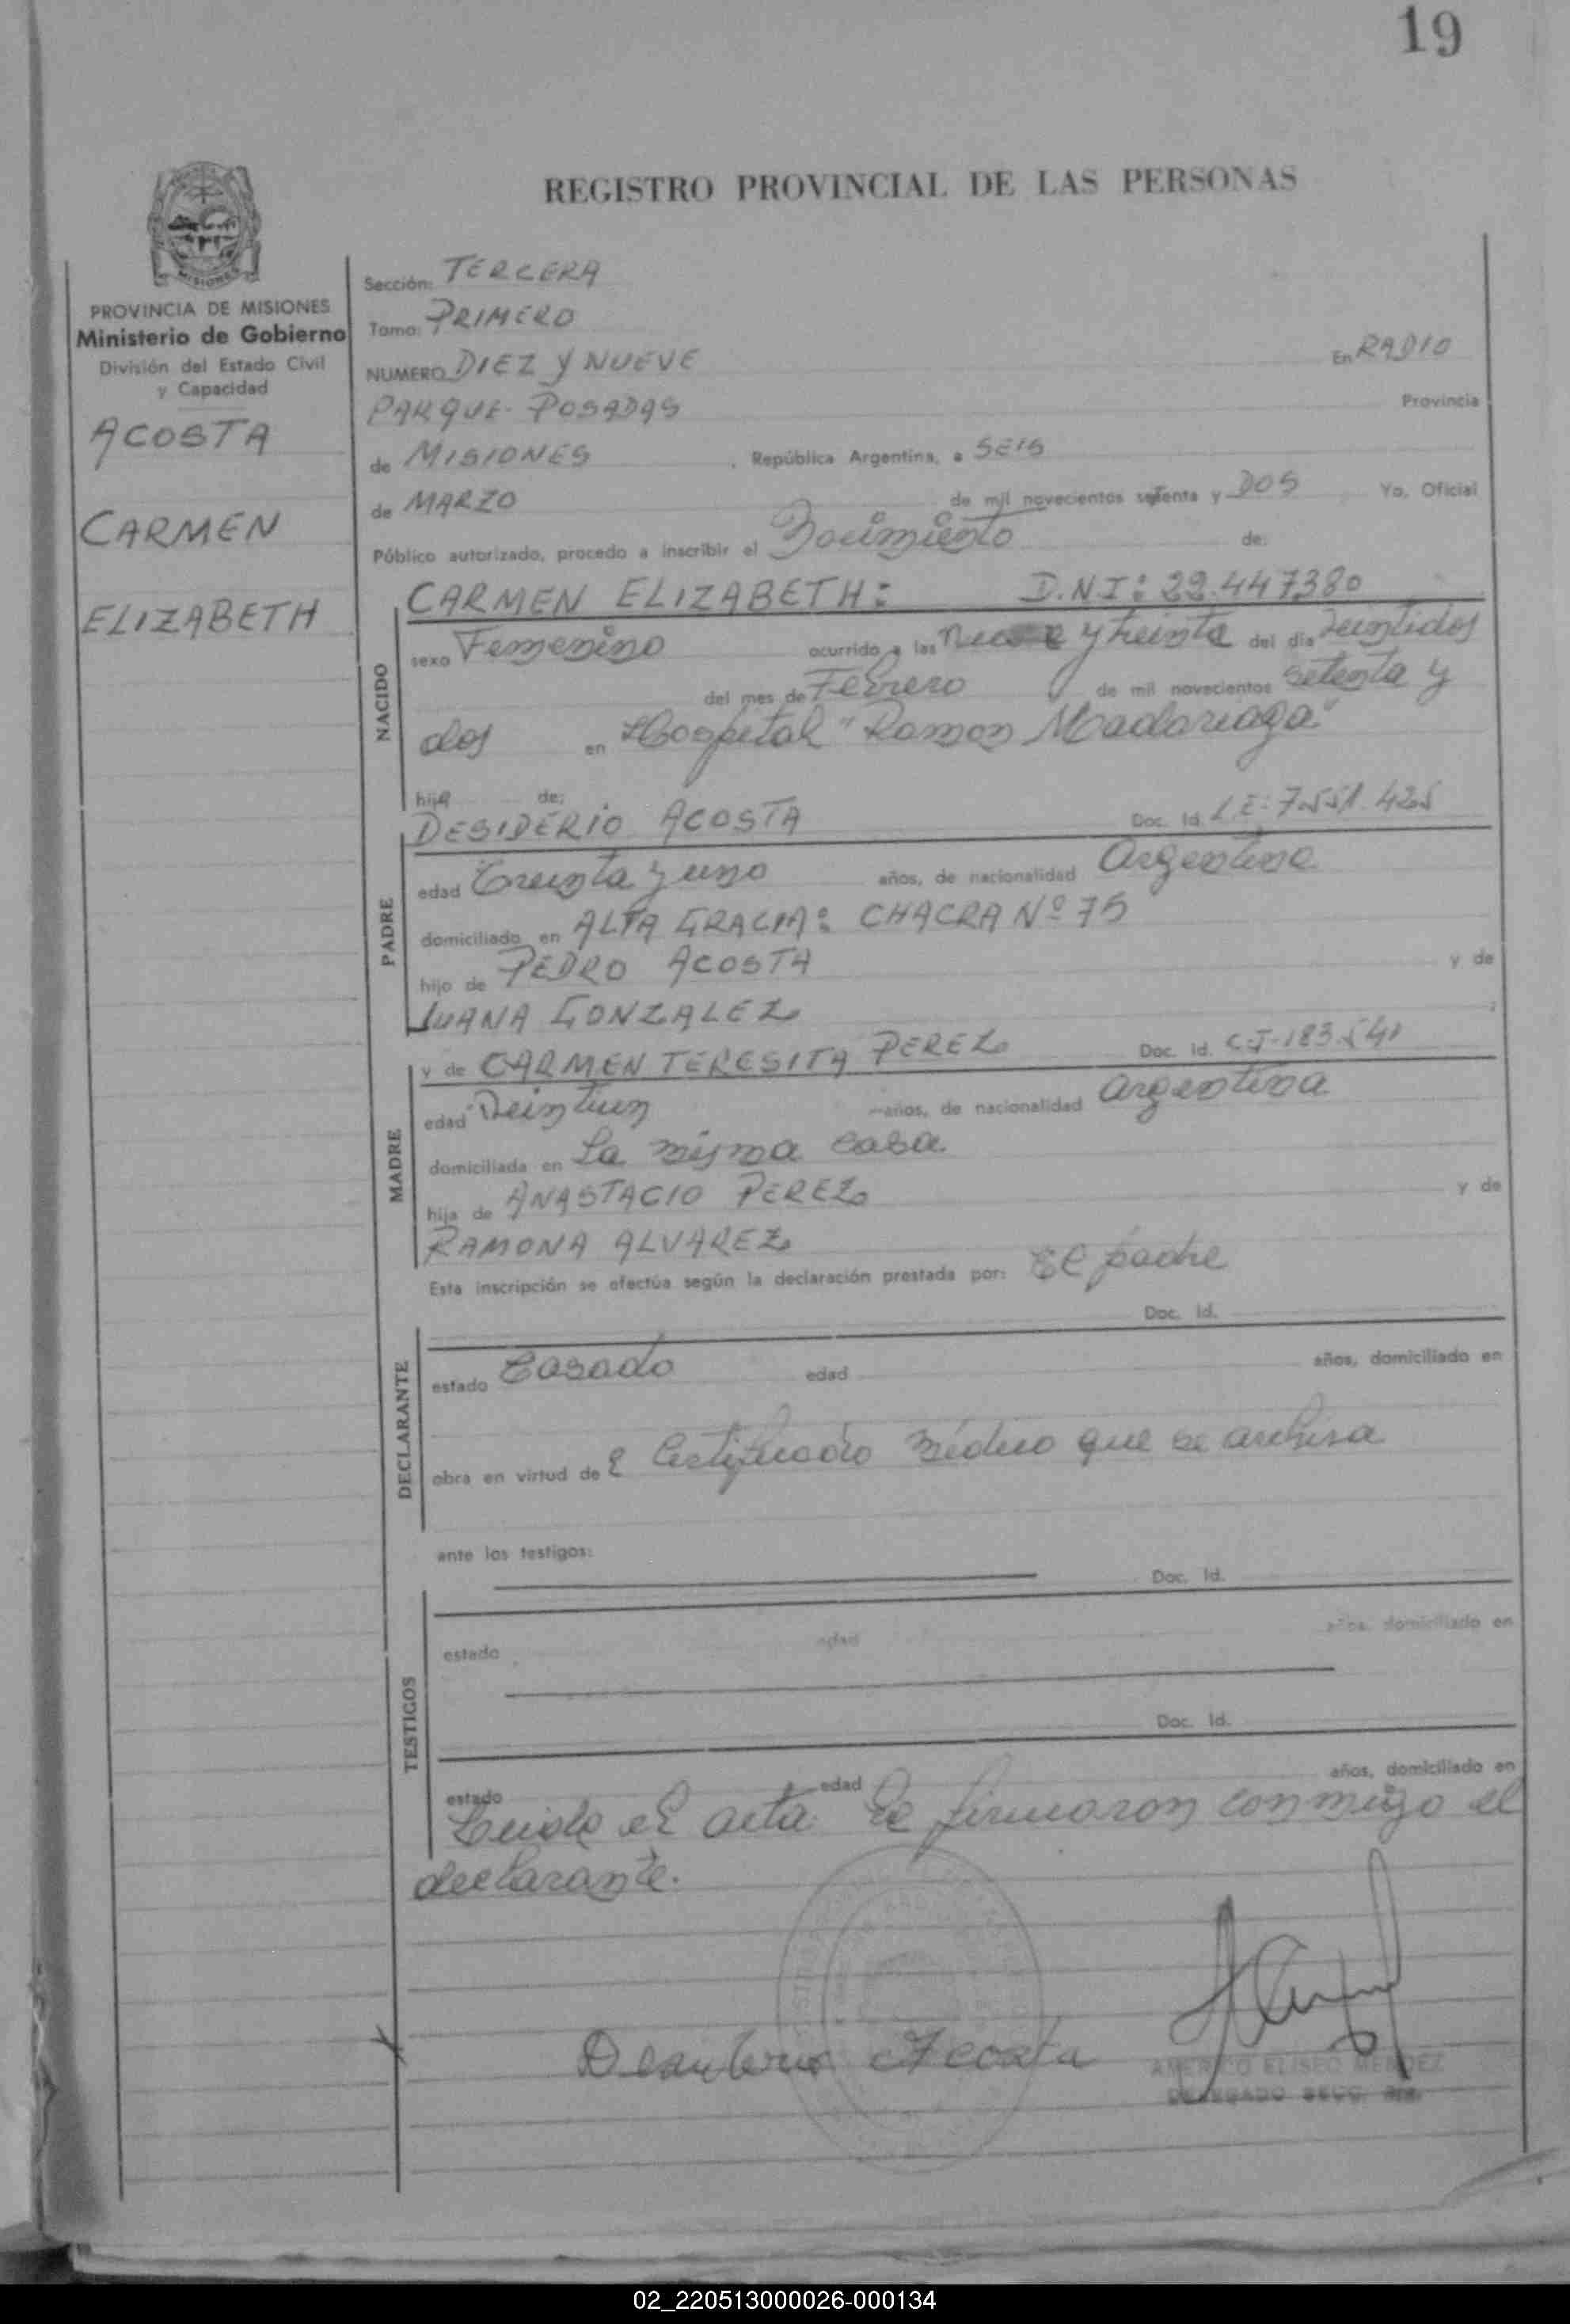 19
REGISTRO PROVINCIAL DE LAS PERSONAS
MISIONES
PROVINCIA DE MISIONES
Ministerio de Gobierno
División del Estado Civil
y Capacidad
ACOSTA
CARMEN
ELIZABETH
Sección: TERCERA
Tomo: PRIMERO
NUMERO DIEZ Y NUEVE En RADIO
PARQUE - POSADAS Provincia
de MISIONES, República Argentina, a SEIS
de MARZO de mil novecientos setenta y DOS Yo, Oficial
Público autorizado, procedo a inscribir el Nacimiento de:
NACIDO
CARMEN ELIZABETH: D.N.I: 22.447380
sexo Femenino ocurrido a las y treinta del día Veintidos
del mes de Febrero de mil novecientos setenta y
dos en Hospital "Ramon Madariaga"
hija de:
PADRE
DESIDERIO ACOSTA Doc. Id. L.E: 7.551.425
edad Treinta y uno años, de nacionalidad Argentina
domiciliado en ALTA GRACIA: CHACRA Nº 75
hijo de PEDRO ACOSTA y de
JUANA GONZALEZ ;
MADRE
y de CARMEN TERESITA PEREZ Doc. Id. C.I-183.541
edad Veintiun años, de nacionalidad Argentina
domiciliada en La misma casa
hija de ANASTACIO PEREZ y de
RAMONA ALVAREZ
Esta inscripción se efectúa según la declaración prestada por: El padre
Doc. Id.
DECLARANTE
estado Casado edad años, domiciliado en
obra en virtud de Certificado médico que se archiva
ante los testigos:
Doc. Id.
TESTIGOS
estado edad años, domiciliado en
Doc. Id.
estado edad años, domiciliado en
Leida el acta la firmaron conmigo el
declarante.
Acosta
AMERICO ELISEO MENDEZ
DELEGADO SECC. 3ra.
02_220513000026-000134